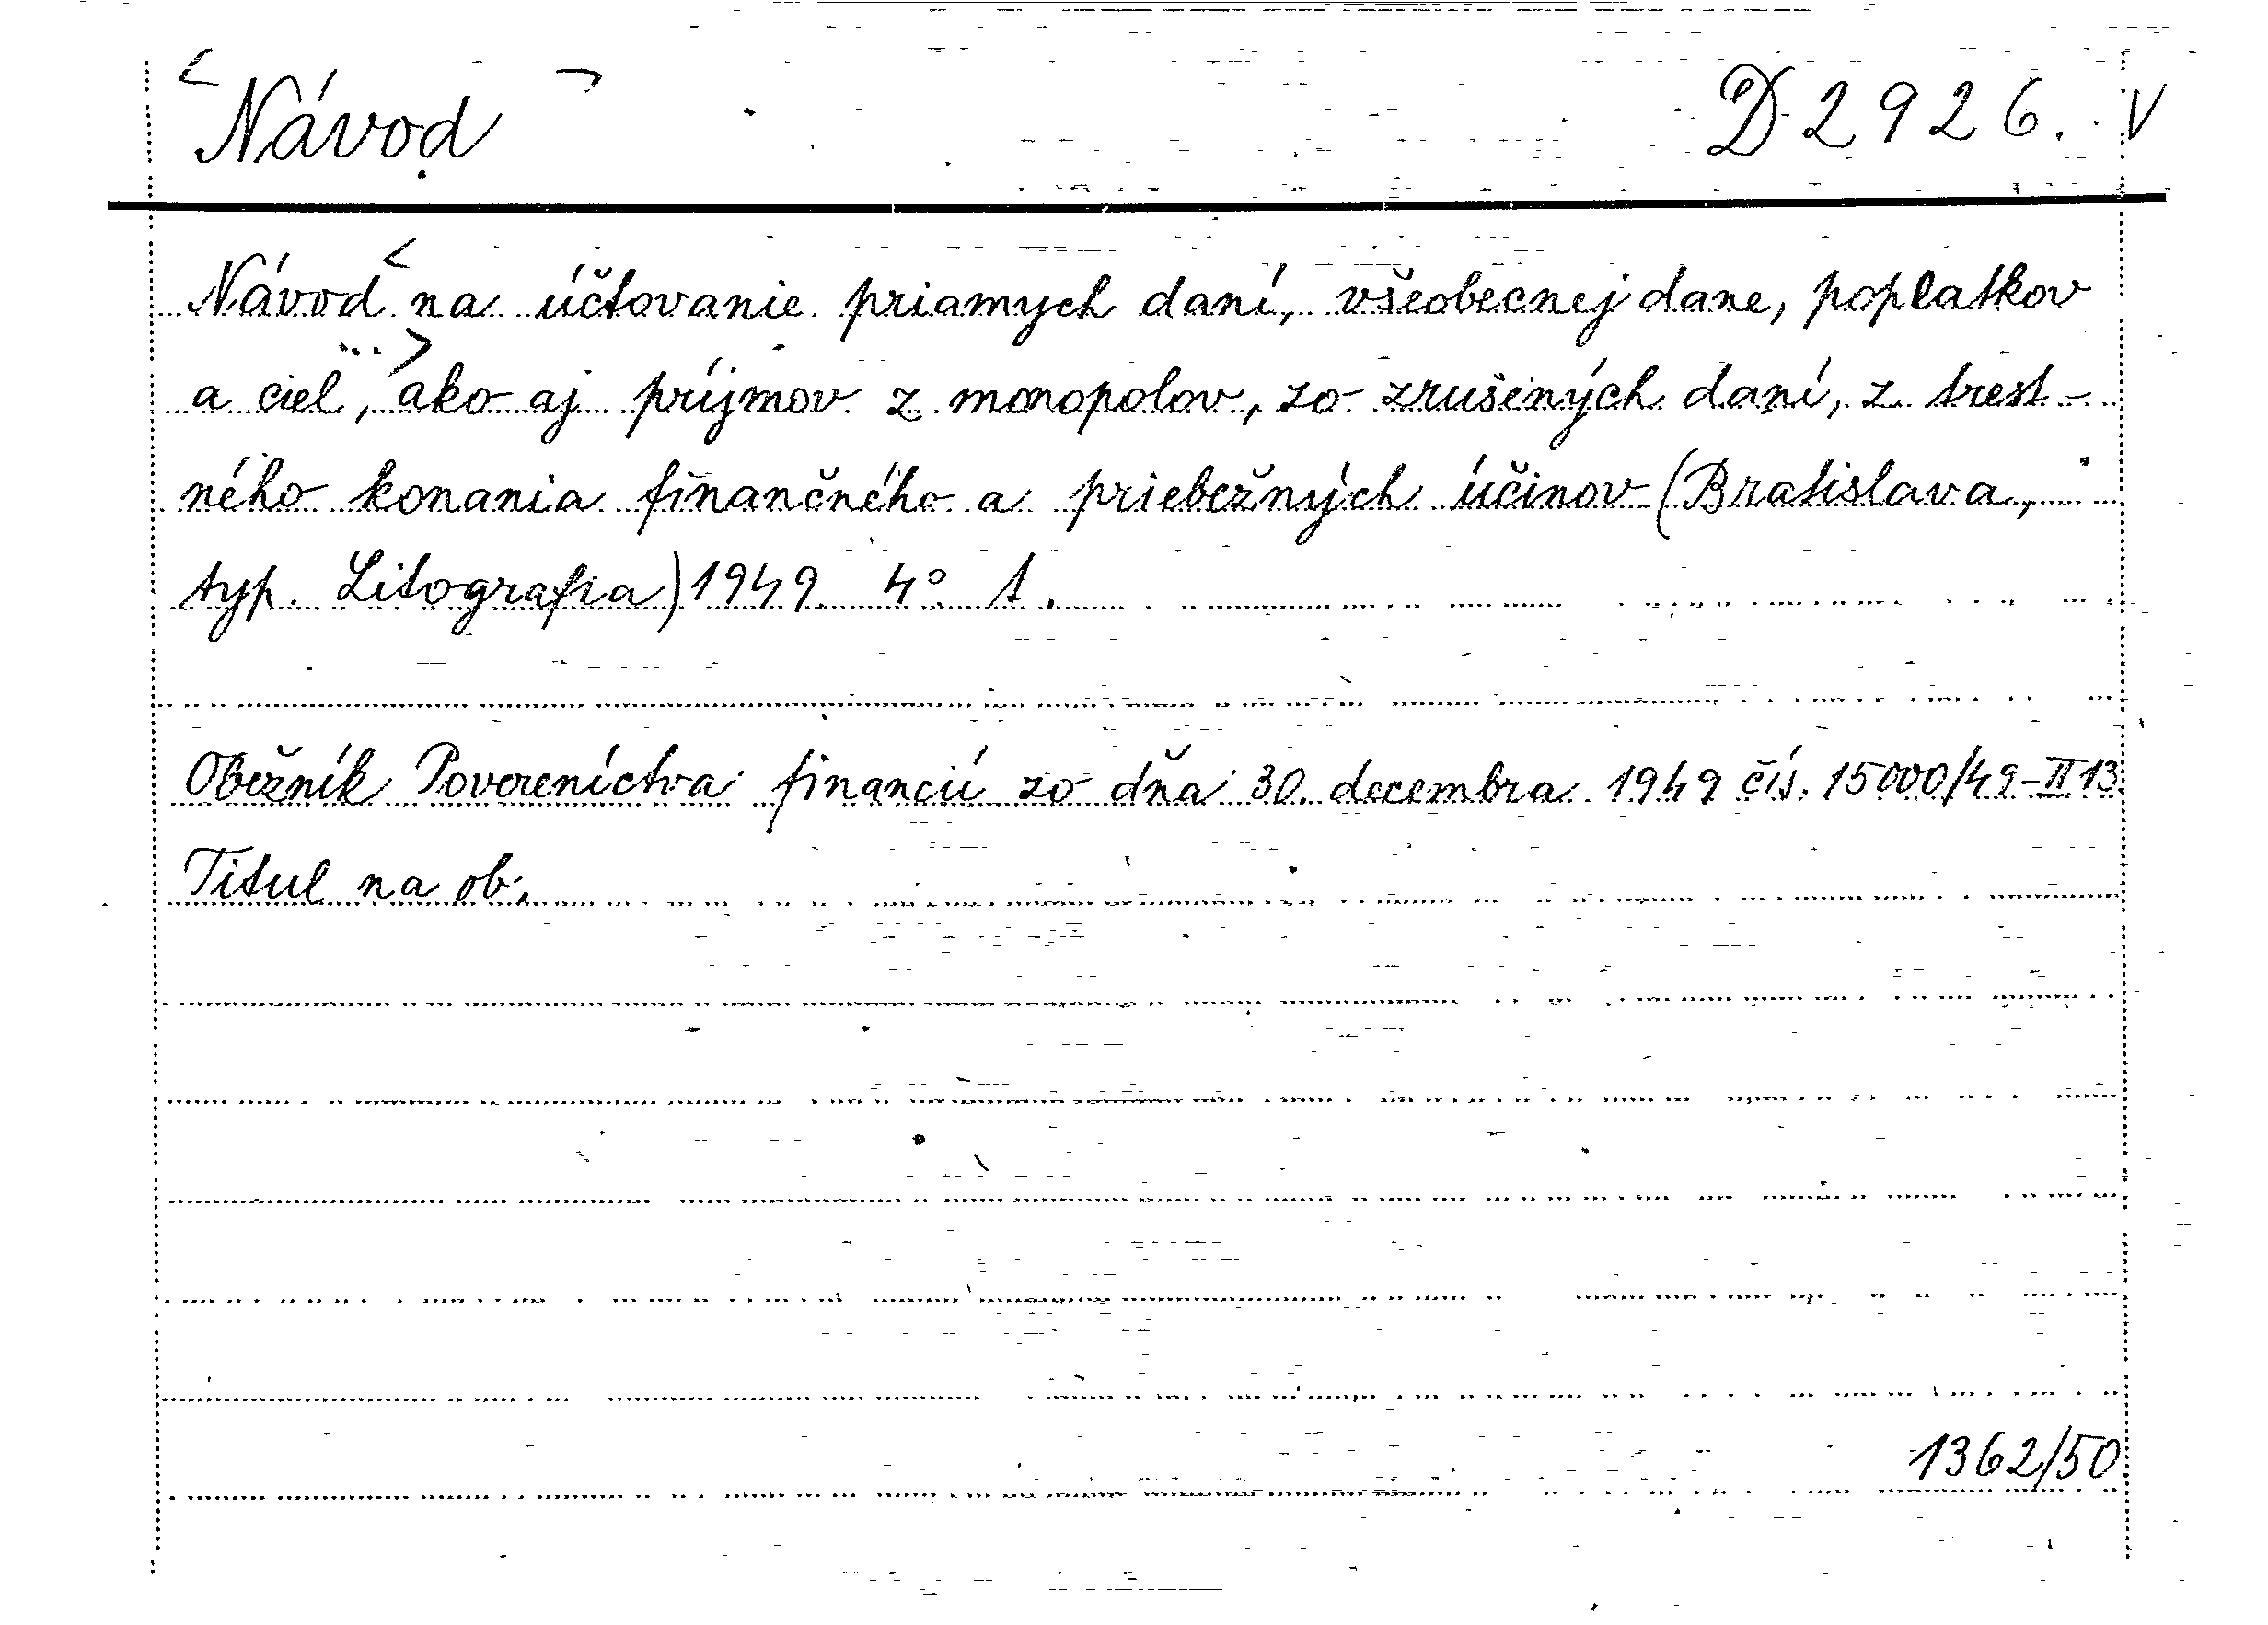 <Návod> D 2926. V
Návod < na účtovanie priamych daní, všeobecnej dane, poplatkov
a ciel, ...> ako aj príjmov z monopolov, zo zrušených daní, z trest-
ného konania finančného a priebežných účinov (Bratislava,
typ. Litografia) 1949 4° 1.
Obežník Povereníctva financií zo dňa 30. decembra 1949 čís. 15000/49-II 13.
Titul na ob.
1362/50